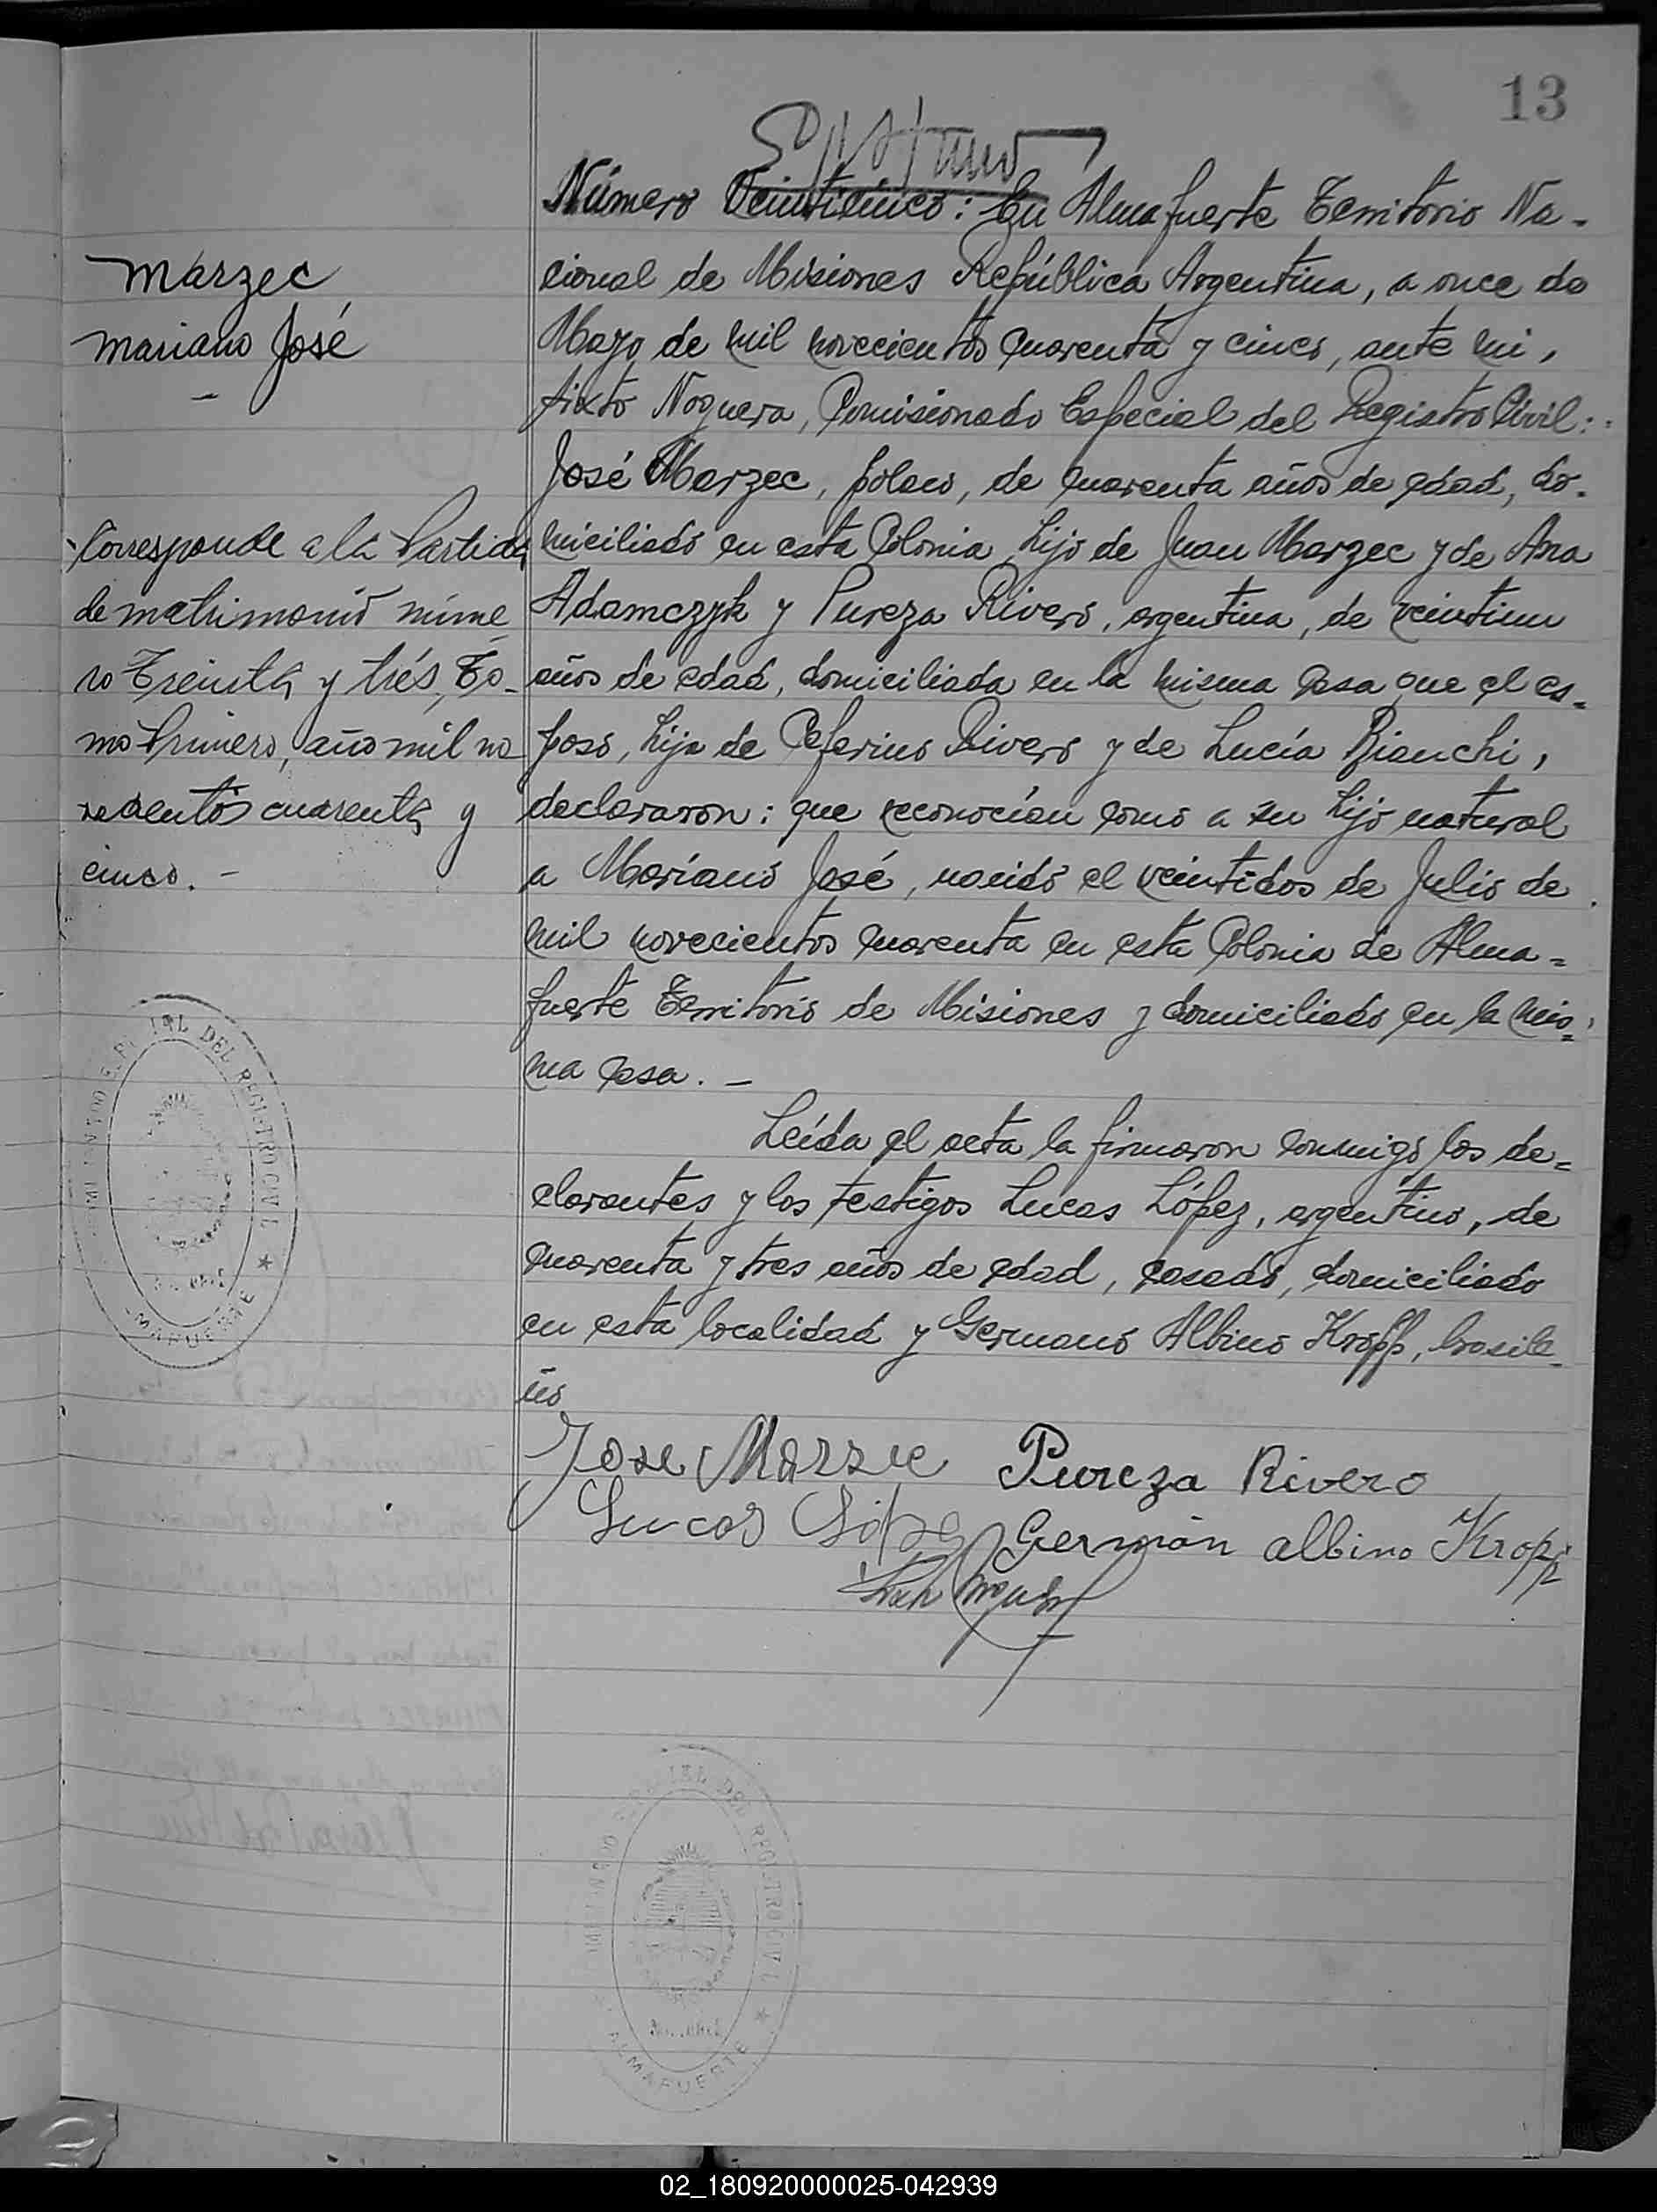 13
Número Veinticinco: En Almafuerte Territorio Na-
cional de Misiones República Argentina, a once de
Mayo de mil novecientos cuarenta y cinco, ante mi,
Sixto Noguera, Comisionado Especial del Registro Civil:
José Marzec, polaco, de cuarenta años de edad, do-
miciliado en esta Colonia, hijo de Juan Marzec y de Ana
Adamczyk y Pureza Rivero, argentina, de veintiun
años de edad, domiciliada en la misma casa que el es-
poso, hija de Ceferino Rivero y de Lucía Bianchi,
declararon: que reconocían como a su hijo natural
a Mariano José, nacido el veintidos de Julio de
mil novecientos cuarenta en esta Colonia de Alma=
fuerte Territorio de Misiones y domiciliado en la mis=
ma casa. -
Leída el acta la firmaron conmigo los de=
clarantes y los testigos Lucas López, argentino, de
cuarenta y tres años de edad, casado, domiciliado
en esta localidad y Germano Albino Kropp, brasile-
ño
Jose Marzec Pureza Rivero
Lucas López German albino Kropp
Marzec
Mariano José
-
Corresponde a la Partida
de matrimonio núme-
ro Treinta y trés, To-
mo Primero, año mil no
vecientos cuarenta y
cinco. -
DEL REGISTRO CIVIL
ALMAFUERTE
DEL REGISTRO CIVIL
ALMAFUERTE
02_180920000025-042939